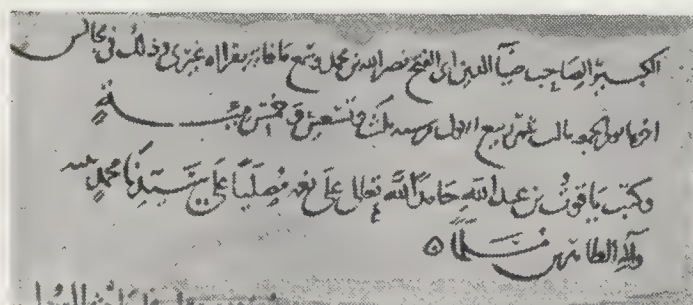 الكبير الصاحب ضياء الدين ابي الفتح نصر الله بن محمد وسمع ما فاته بقراءة غيري وذلك في مجالس
اخرها يوم الجمعة ثالث عشر ربيع الاول سنه ثلث وتسعين وخمس مئة
وكتب ياقوت بن عبد الله حامدًا لله تعالى على نعمه ومصليًا على سيدنا محمد نبيه
وآله الطاهرين ومسلمًا